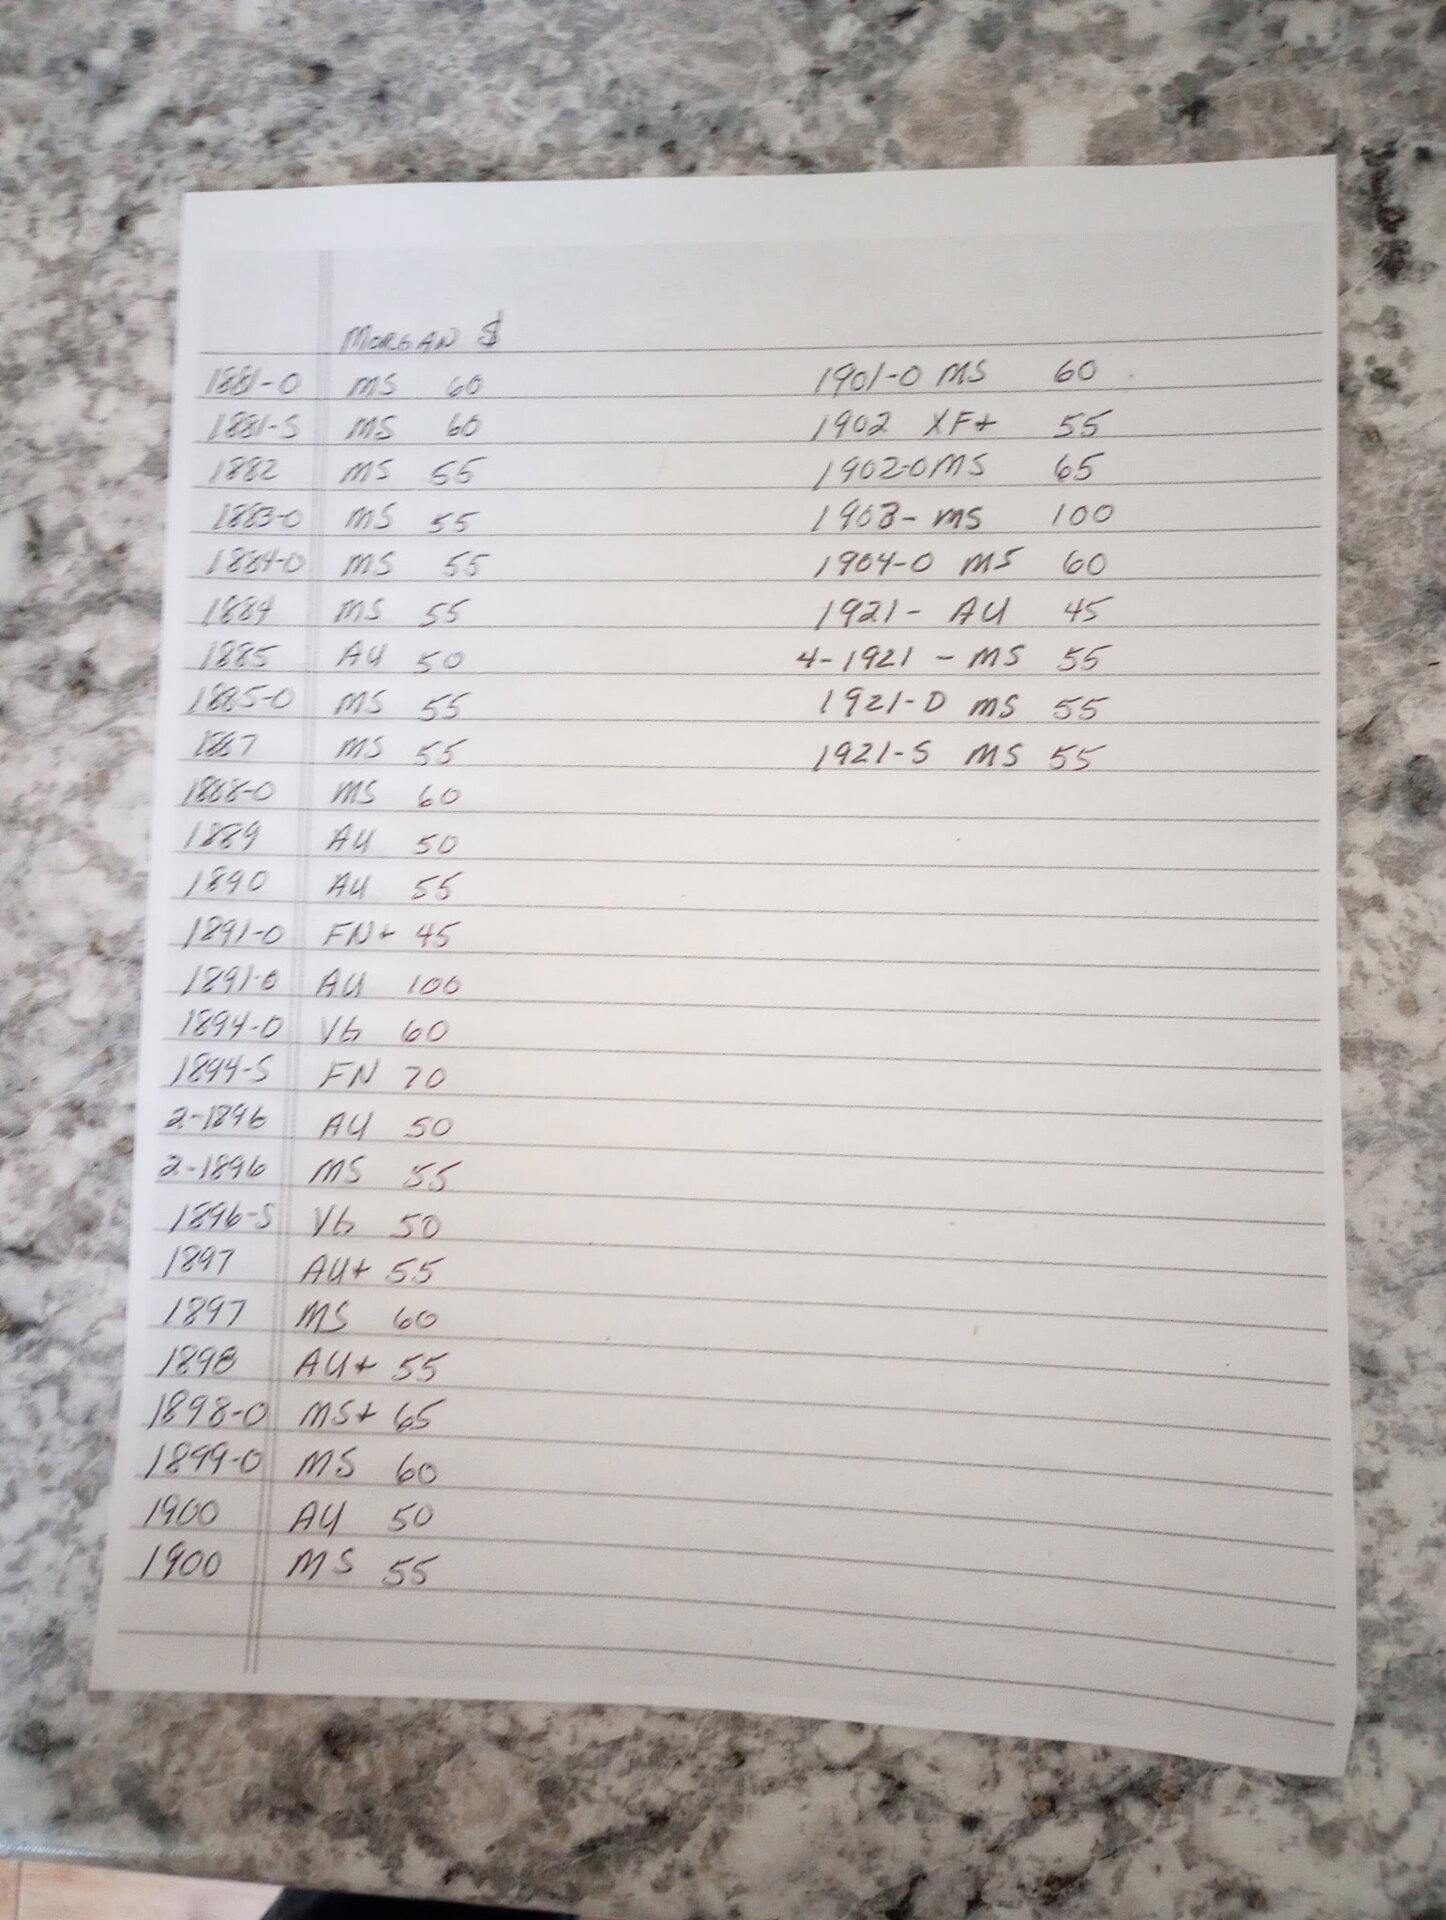 MORGAN $
1881-O MS 60
1881-S MS 60
1882 MS 55
1883-O MS 55
1884-O MS 55
1884 MS 55
1885 AU 50
1885-O MS 55
1887 MS 55
1888-O MS 60
1889 AU 50
1890 AU 55
1891-O FN+ 45
1891-O AU 100
1894-O VG 60
1894-S FN 70
2-1896 AU 50
2-1896 MS 55
1896-S VG 50
1897 AU+ 55
1897 MS 60
1898 AU+ 55
1898-O MS+ 65
1899-O MS 60
1900 AU 50
1900 MS 55
1901-O MS 60
1902 XF+ 55
1902-O MS 65
1903- MS 100
1904-O MS 60
1921- AU 45
4-1921 - MS 55
1921-D MS 55
1921-S MS 55